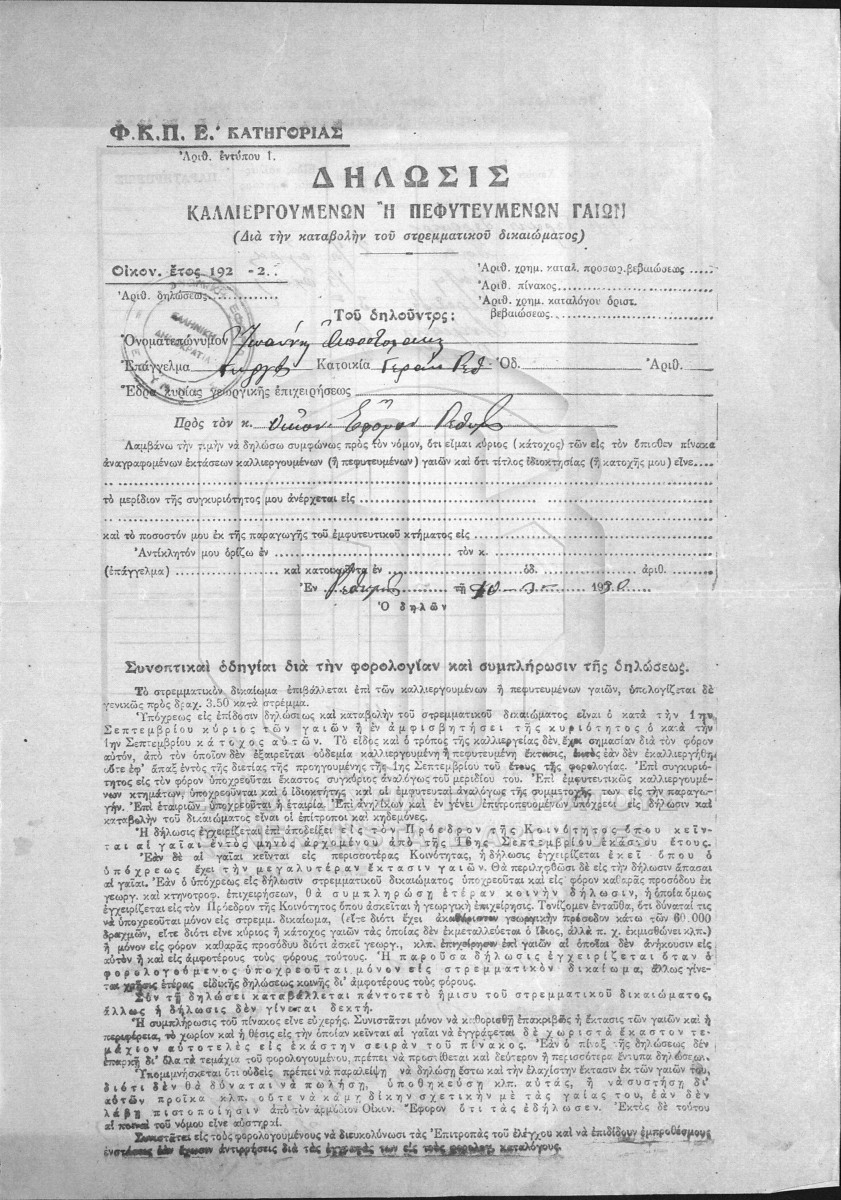 Φ.Κ.Π. Ε.' ΚΑΤΗΓΟΡΙΑΣ
Ἀριθ. ἐντύπου 1.
ΔΗΛΩΣΙΣ
ΚΑΛΛΙΕΡΓΟΥΜΕΝΩΝ Ἢ ΠΕΦΥΤΕΥΜΕΝΩΝ ΓΑΙΩΝ
(Διὰ τὴν καταβολὴν τοῦ στρεμματικοῦ δικαιώματος)
Οἰκον. ἔτος 192 -2
Ἀριθ. δηλώσεως
Ἀριθ. χρημ. καταλ. προσωρ. βεβαιώσεως
Ἀριθ. πίνακος
Ἀριθ. χρημ. καταλόγου ὁριστ.
βεβαιώσεως
ΕΛΛΗΝΙΚΗ
ΔΗΜΟΚΡΑΤΙΑ
Τοῦ δηλοῦντος:
Ὀνοματεπώνυμον Ἰωάννης
Ἐπάγγελμα Κατοικία Ὁδ. Ἀριθ.
Ἕδρα κυρίας γεωργικῆς ἐπιχειρήσεως
Πρὸς τὸν κ. Οἰκον. Ἔφορον
Λαμβάνω τὴν τιμὴν νὰ δηλώσω συμφώνως πρὸς τὸν νόμον, ὅτι εἶμαι κύριος (κάτοχος) τῶν εἰς τὸν ὄπισθεν πίνακα
ἀναγραφομένων ἐκτάσεων καλλιεργουμένων (ἢ πεφυτευμένων) γαιῶν καὶ ὅτι τίτλος ἰδιοκτησίας (ἢ κατοχῆς μου) εἶνε
τὸ μερίδιον τῆς συγκυριότητος μου ἀνέρχεται εἰς
καὶ τὸ ποσοστόν μου ἐκ τῆς παραγωγῆς τοῦ ἐμφυτευτικοῦ κτήματος εἰς
Ἀντίκλητόν μου ὁρίζω ἐν τὸν κ.
(ἐπάγγελμα) καὶ κατοικοῦντα ἐν ὁδ. ἀριθ.
Ἐν τῇ 1930
Ὁ δηλῶν
Συνοπτικαὶ ὁδηγίαι διὰ τὴν φορολογίαν καὶ συμπλήρωσιν τῆς δηλώσεως.
Τὸ στρεμματικὸν δικαίωμα ἐπιβάλλεται ἐπὶ τῶν καλλιεργουμένων ἢ πεφυτευμένων γαιῶν, ὑπολογίζεται δὲ
γενικῶς πρὸς δραχ. 3.50 κατὰ στρέμμα.
Ὑπόχρεως εἰς ἐπίδοσιν δηλώσεως καὶ καταβολὴν τοῦ στρεμματικοῦ δικαιώματος εἶναι ὁ κατὰ τὴν 1ην
Σεπτεμβρίου κύριος τῶν γαιῶν ἢ ἐν ἀμφισβητήσει τῆς κυριότητος ὁ κατὰ τὴν
1ην Σεπτεμβρίου κάτοχος αὐτῶν. Τὸ εἶδος καὶ ὁ τρόπος τῆς καλλιεργείας δὲν ἔχει σημασίαν διὰ τὸν φόρον
αὐτόν, ἀπὸ τὸν ὁποῖον δὲν ἐξαιρεῖται οὐδεμία καλλιεργουμένη ἢ πεφυτευμένη ἔκτασις, ἐκτὸς ἐὰν δὲν ἐκαλλιεργήθη
οὔτε ἐφ' ἅπαξ ἐντὸς τῆς διετίας τῆς προηγουμένης τῆς 1ης Σεπτεμβρίου τοῦ ἔτους τῆς φορολογίας. Ἐπὶ συγκυριό-
τητος εἰς τὸν φόρον ὑποχρεοῦται ἕκαστος συγκύριος ἀναλόγως τοῦ μεριδίου του. Ἐπὶ ἐμφυτευτικῶς καλλιεργουμέ-
νων κτημάτων, ὑποχρεοῦνται καὶ ὁ ἰδιοκτήτης καὶ οἱ ἐμφυτευταὶ ἀναλόγως τῆς συμμετοχῆς των εἰς τὴν παραγω-
γήν. Ἐπὶ ἑταιριῶν ὑποχρεοῦται ἡ ἑταιρία. Ἐπὶ ἀνηλίκων καὶ ἐν γένει ἐπιτροπευομένων ὑπόχρεοι εἰς δήλωσιν καὶ
καταβολὴν τοῦ δικαιώματος εἶναι οἱ ἐπίτροποι καὶ κηδεμόνες.
Ἡ δήλωσις ἐγχειρίζεται ἐπὶ ἀποδείξει εἰς τὸν Πρόεδρον τῆς Κοινότητος ὅπου κεῖν-
ται αἱ γαῖαι ἐντὸς μηνὸς ἀρχομένου ἀπὸ τῆς 16ης Σεπτεμβρίου ἑκάστου ἔτους.
Ἐὰν δὲ αἱ γαῖαι κεῖνται εἰς περισσοτέρας Κοινότητας, ἡ δήλωσις ἐγχειρίζεται ἐκεῖ ὅπου ὁ
ὑπόχρεως ἔχει τὴν μεγαλυτέραν ἔκτασιν γαιῶν. Θὰ περιληφθῶσι δὲ εἰς τὴν δήλωσιν ἅπασαι
αἱ γαῖαι. Ἐὰν ὁ ὑπόχρεως εἰς δήλωσιν στρεμματικοῦ δικαιώματος ὑποχρεοῦται καὶ εἰς φόρον καθαρᾶς προσόδου ἐκ
γεωργ. καὶ κτηνοτροφ. ἐπιχειρήσεων, θὰ συμπληρώσῃ ἑτέραν κοινὴν δήλωσιν, ἡ ὁποία ὅμως
ἐγχειρίζεται εἰς τὸν Πρόεδρον τῆς Κοινότητος ὅπου ἀσκεῖται ἡ γεωργικὴ ἐπιχείρησις. Τονίζομεν ἐνταῦθα, ὅτι δύναταί τις
νὰ ὑποχρεοῦται μόνον εἰς στρεμμ. δικαίωμα, (εἴτε διότι ἔχει ἀκαθάριστον γεωργικὴν πρόσοδον κάτω τῶν 60.000
δραχμῶν, εἴτε διότι εἶνε κύριος ἢ κάτοχος γαιῶν τὰς ὁποίας δὲν ἐκμεταλλεύεται ὁ ἴδιος, ἀλλὰ π. χ. ἐκμισθώνει κλπ.)
ἢ μόνον εἰς φόρον καθαρᾶς προσόδου διότι ἀσκεῖ γεωργ., κλπ. ἐπιχείρησιν ἐπὶ γαιῶν αἱ ὁποῖαι δὲν ἀνήκουσιν εἰς
αὐτὸν ἢ καὶ εἰς ἀμφοτέρους τοὺς φόρους τούτους. Ἡ παροῦσα δήλωσις ἐγχειρίζεται ὅταν ὁ
φορολογούμενος ὑποχρεοῦται μόνον εἰς στρεμματικὸν δικαίωμα, ἄλλως γίνε-
ται χρῆσις ἑτέρας εἰδικῆς δηλώσεως κοινῆς δι' ἀμφοτέρους τοὺς φόρους.
Σὺν τῇ δηλώσει καταβάλλεται πάντοτε τὸ ἥμισυ τοῦ στρεμματικοῦ δικαιώματος,
ἄλλως ἡ δήλωσις δὲν γίνεται δεκτή.
Ἡ συμπλήρωσις τοῦ πίνακος εἶνε εὐχερής. Συνιστᾶται μόνον νὰ καθορισθῇ ἐπακριβῶς ἡ ἔκτασις τῶν γαιῶν καὶ ἡ
περιφέρεια, τὸ χωρίον καὶ ἡ θέσις εἰς τὴν ὁποίαν κεῖνται αἱ γαῖαι νὰ ἐγγράφεται δὲ χωριστὰ ἕκαστον τε-
μάχιον αὐτοτελὲς εἰς ἑκάστην σειρὰν τοῦ πίνακος. Ἐὰν ὁ πίναξ τῆς δηλώσεως δὲν
ἐπαρκῇ δι' ὅλα τὰ τεμάχια τοῦ φορολογουμένου, πρέπει νὰ προστίθεται καὶ δεύτερον ἢ περισσότερα ἔντυπα δηλώσεων.
Ὑπομιμνήσκεται ὅτι οὐδεὶς πρέπει νὰ παραλείψῃ νὰ δηλώσῃ ἔστω καὶ τὴν ἐλαχίστην ἔκτασιν ἐκ τῶν γαιῶν του,
διότι δὲν θὰ δύναται νὰ πωλήσῃ, ὑποθηκεύσῃ κλπ. αὐτάς, ἢ νὰ συστήσῃ δι'
αὐτῶν προῖκα κλπ. οὔτε νὰ κάμῃ δίκην σχετικὴν μὲ τὰς γαίας του, ἐὰν δὲν
λάβῃ πιστοποίησιν ἀπὸ τὸν ἁρμόδιον Οἰκον. Ἔφορον ὅτι τὰς ἐδήλωσεν. Ἐκτὸς δὲ τούτου
αἱ ποιναὶ τοῦ νόμου εἶνε αὐστηραί.
Συνιστᾶται εἰς τοὺς φορολογουμένους νὰ διευκολύνωσι τὰς Ἐπιτροπὰς τοῦ ἐλέγχου καὶ νὰ ἐπιδίδουν ἐμπροθέσμους
ἐνστάσεις ἐὰν ἔχωσιν ἀντιρρήσεις διὰ τὰς ἐγγραφάς των εἰς τοὺς φορολογ. καταλόγους.